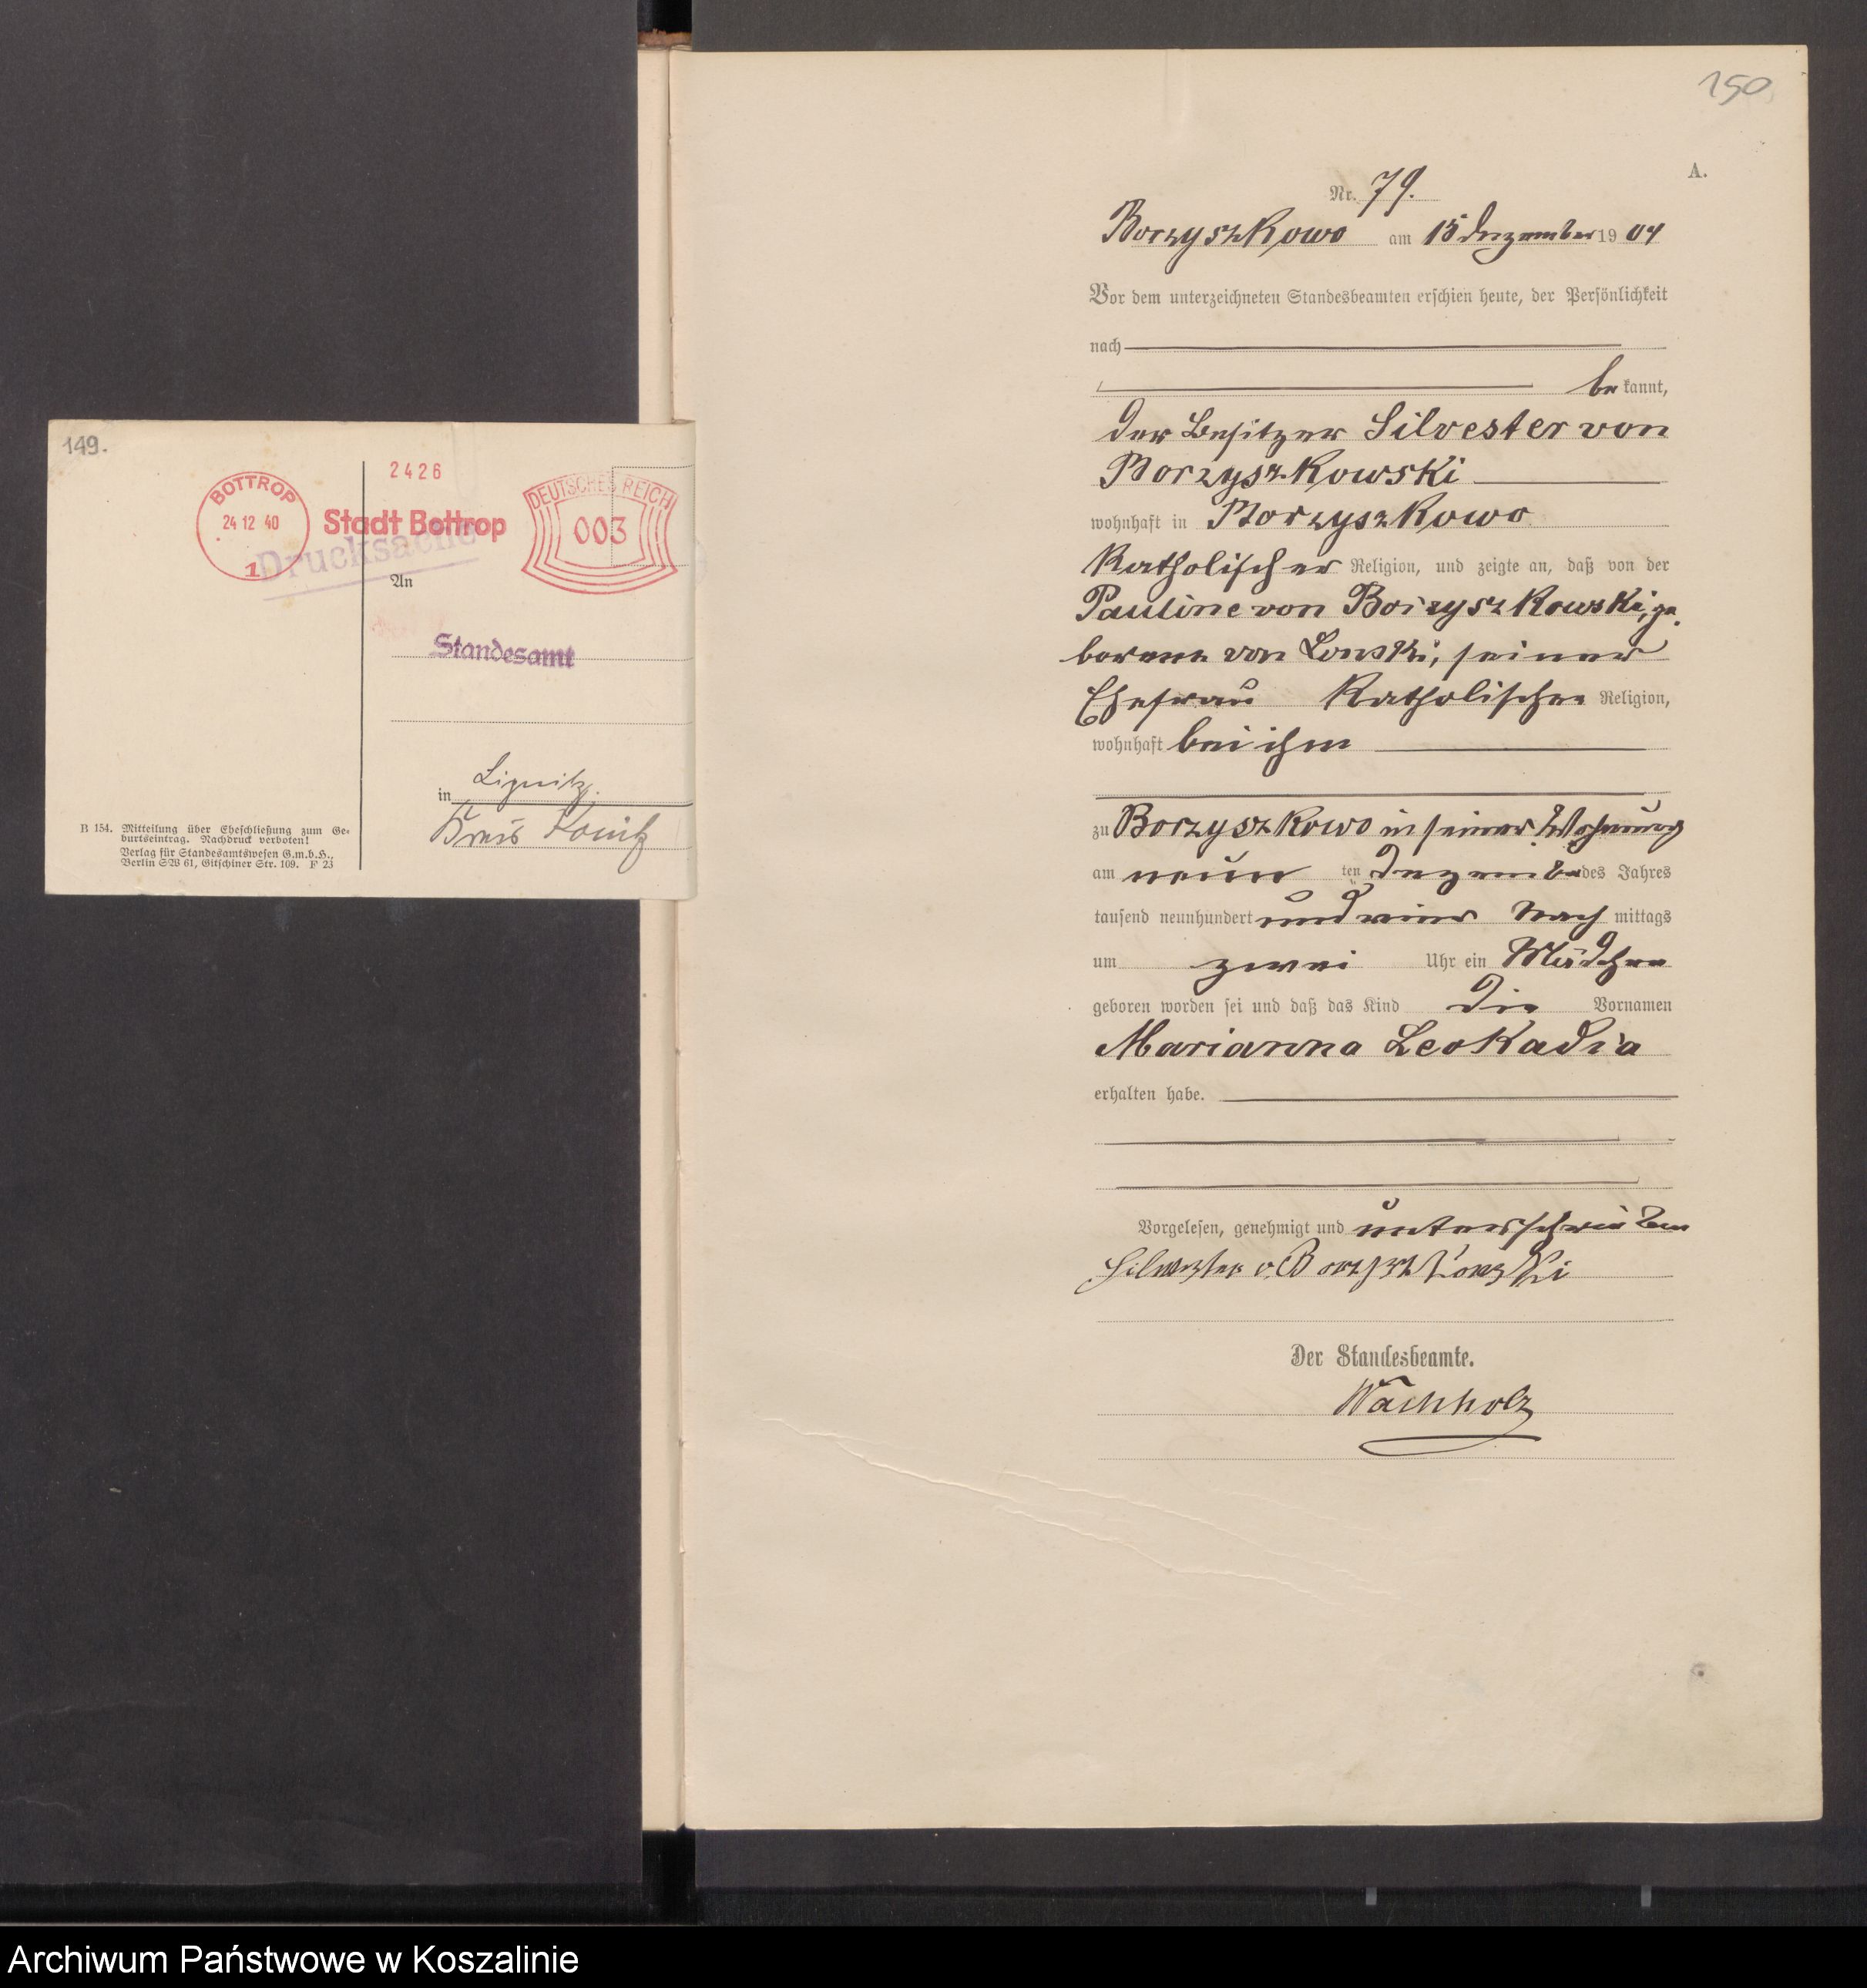 149.
BOTTROP
24 12 40
1
2426
Stadt Bottrop
DEUTSCHES REICH
003
Drucksache
An
Standesamt
in
Kreis Konitz
B 154. Mitteilung über Eheschließung zum Ge-
burtseintrag. Nachdruck verboten!
Verlag für Standesamtswesen G.m.b.H.,
Berlin SW 61, Gitschiner Str. 109. F 23
150
A.
Nr. 79.
Borzyszkowo am 15 Dezember 1904
Vor dem unterzeichneten Standesbeamten erschien heute, der Persönlichkeit
nach
bekannt,
der Besitzer Silvester von
Borzyszkowski
wohnhaft in Borzyszkowo
katholischer Religion, und zeigte an, daß von der
Pauline von Borzyszkowski, ge-
borene von Lonski, seiner
Ehefrau katholischer Religion,
wohnhaft bei ihm
zu Borzyszkowo in seiner Wohnung
am neun ten Dezember des Jahres
tausend neunhundert und vier Nach mittags
um zwei Uhr ein Mädchen
geboren worden sei und daß das Kind die Vornamen
Marianna Leokadia
erhalten habe.
Vorgelesen, genehmigt und unterschrieben
Silvester v. Borzyszkowski
Der Standesbeamte.
Wachholz
Archiwum Państwowe w Koszalinie